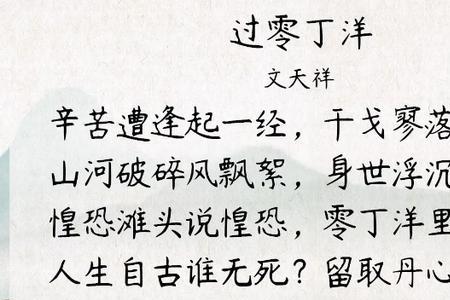 过零丁洋
文天祥
辛苦遭逢起一经，干戈寥落
山河破碎风飘絮，身世浮沉
惶恐滩头说惶恐，零丁洋里
人生自古谁无死？留取丹心